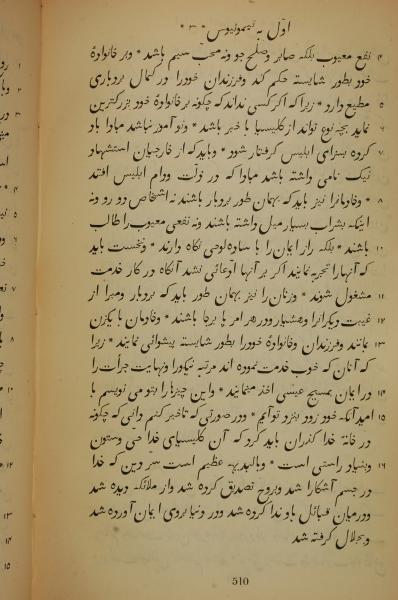 اوّل به تیموثیوس * ۳ *
۴ نفع معیوب بلکه صابر و صلح جو و نه محب سیم باشد * و بر خانوادهٔ
خود بطور شایسته حکم کند و فرزندان خودرا در کمال بردباری
۵ مطیع دارد * زیرا که اگر کسی نداند که چگونه بر خانوادهٔ خود بزرگترین
۶ نماید بچه نوع تواند از کلیسیا با خبر باشد * و نو آموز نباشد مبادا باد
۷ کرده بسزای ابلیس گرفتار شود * و باید که از خارجیان استشهاد
نیک نامی داشته باشد مبادا که در ذلت و دام ابلیس افتد
۸ * و خادمانرا نیز باید که بهمان طور بردبار باشند نه اشخاص دو رو و نه
اینکه بشراب بسیار میل داشته باشند و نه نفعی معیوب را طالب
۱۰ باشند * بلکه راز ایمان را با ساده لوحی نگاه دارند * و نخست باید
که آنها را تجربه نمایند اگر بر آنها ادّعائی نشد آنگاه در کار خدمت
۱۱ مشغول شوند * و زنان را نیز بهمان طور باید که بردبار و مبرا از
۱۲ غیبت دیگران و هشیار و در هر امر پا برجا باشند * و خادمان با یکزن
۱۳ مانند و فرزندان و خانوادهٔ خودرا بطور شایسته پیشوائی نمایند * زیرا
که آنان که خوب خدمت نموده اند مرتبه نیکو و نهایت جرأت را
۱۴ در ایمان بمسیح عیسی اخذ مینمایند * و این چیزها را بتو می نویسم با
۱۵ امید آنکه خود زود بنزد تو آیم * و در صورتی که تاخیر کنم دانی که چگونه
در خانهٔ خدا گذران باید کرد که آن کلیسیای خدا حی و ستون
۱۶ و بنیاد راستی است * و بالبدیهه عظیم است سر دین که خدا
در جسم آشکارا شد و بروح تصدیق کرده شد و از ملائکه دیده شد
و در میان قبائل باو ندا کرده شد و در دنیا بروی ایمان آورده شد
و بجلال گرفته شد
510